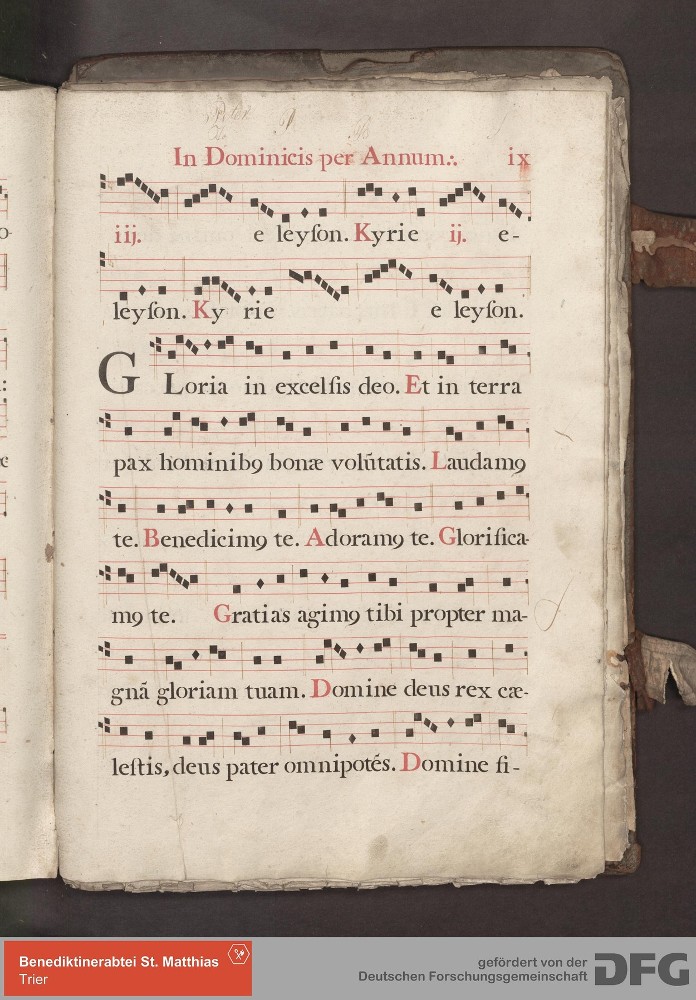 In Dominicis per Annum.·. ix
iij. e leyſon. Kyrie ij. e-
leyſon. Ky rie e leyſon.
GLoria in excelſis deo. Et in terra
pax hominibꝯ bonæ volūtatis. Laudamꝯ
te. Benedicimꝯ te. Adoramꝯ te. Glorifica-
mꝯ te. Gratias agimꝯ tibi propter ma-
gnã gloriam tuam. Domine deus rex cæ-
leſtis, deus pater omnipotẽs. Domine fi-
Benediktinerabtei St. Matthias
Trier
gefördert von der
Deutschen Forschungsgemeinschaft
DFG